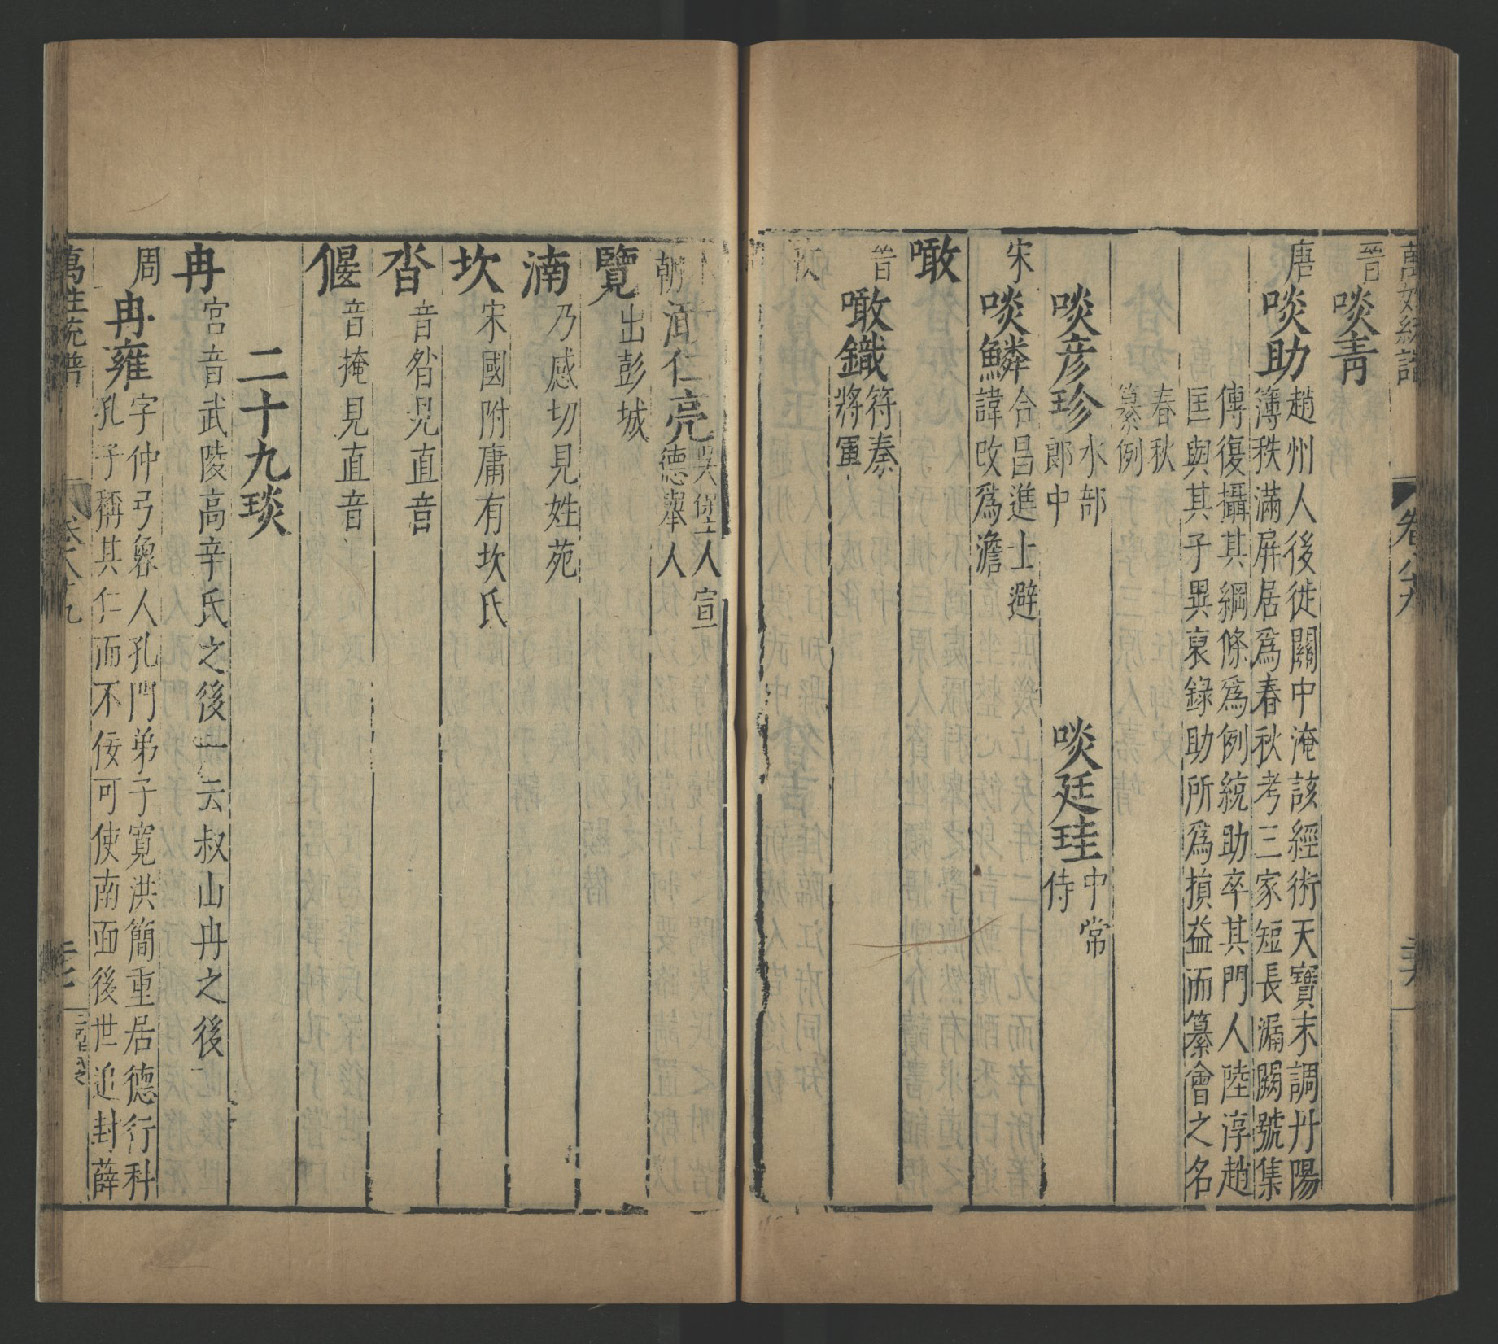 萬姓統譜
卷八十九
晉 啖青
唐 啖助 趙州人後徙關中淹該經術天寶末調丹陽
簿秩滿屏居爲春秋考三家短長漏闕號集
傳復攝其綱條爲例統助卒其門人陸淳趙
匡與其子異裒錄助所爲損益而纂會之名
春秋
纂例
啖彦珍 水部
郎中
啖廷珪 中常
侍
宋 啖鱗 合昌進士避
諱改爲澹
噉
晉 噉鐵 符秦
將軍
朝 湳仁亮 人宣
德舉人
覽 出彭城
湳 乃感切見姓苑
坎 宋國附庸有坎氏
昝 音昝見直音
偃 音掩見直音
二十九琰
冉 宮音武陵高辛氏之後一云叔山冉之後
周 冉雍 字仲弓魯人孔門弟子寬洪簡重居德行科
孔子稱其仁而不佞可使南面後世追封薛
萬姓統譜